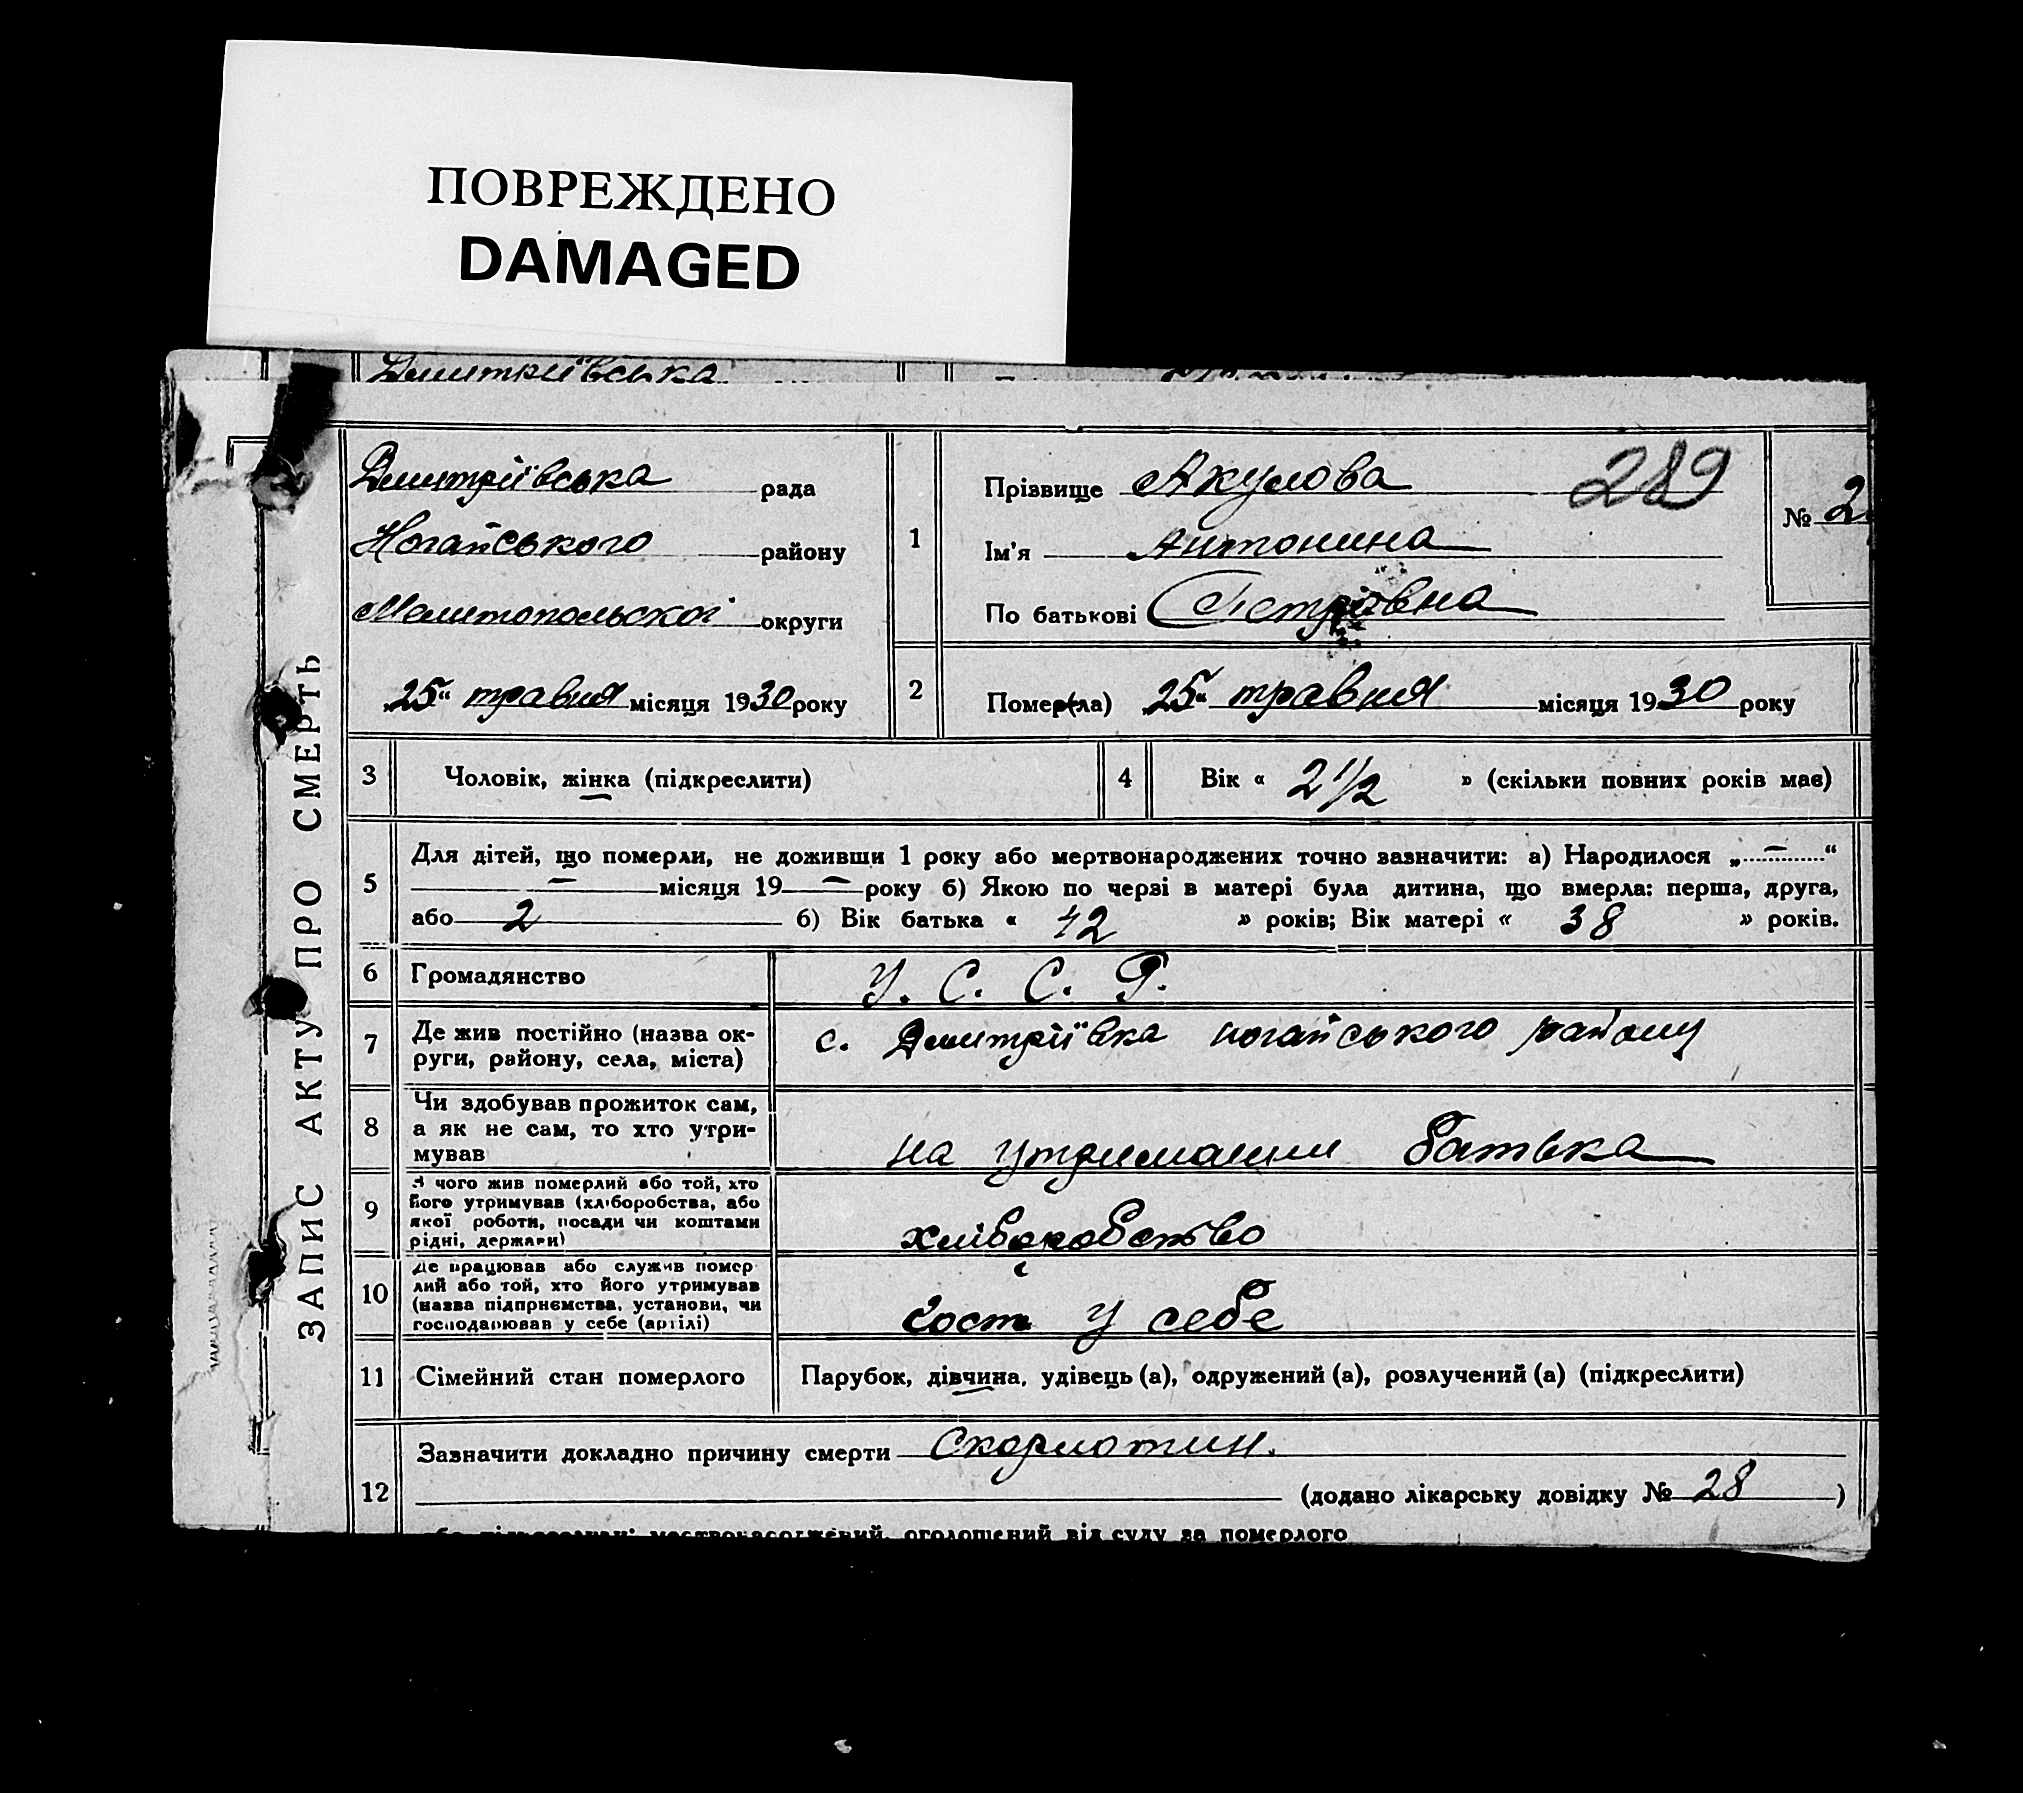 ПОВРЕЖДЕНО
DAMAGED
Дмитріївська
ЗАПИС АКТУ ПРО СМЕРТЬ
Дмитріївська рада
Ногайського району
Мелитопольскої округи
„25“ травня місяця 1930 року
1
Прізвище Акулова 289
Ім’я Антонина
По батькові Петрівна
№ 2
2 Помер(ла) „25“ травня місяця 1930 року
3 Чоловік, жінка (підкреслити)
4 Вік « 2 1/2 » (скільки повних років має)
5 Для дітей, що померли, не доживши 1 року або мертвонароджених точно зазначити: а) Народилося „ – “
– місяця 19 – року б) Якою по черзі в матері була дитина, що вмерла: перша, друга,
або 2 б) Вік батька « 42 » років; Вік матері « 38 » років.
6 Громадянство У. С. С. Р.
7 Де жив постійно (назва ок-
руги, району, села, міста)
с. Дмитріївка ногайського району
8 Чи здобував прожиток сам,
а як не сам, то хто утри-
мував
на утриманни батька
9 З чого жив померлий або той, хто
його утримував (хліборобства, або
якої роботи, посади чи коштами
рідні, держави)
хліборобство
10 Де працював або служив помер
лий або той, хто його утримував
(назва підприємства, установи, чи
господарював у себе (артілі)
у себе
11 Сімейний стан померлого Парубок, дівчина, удівець (а), одружений (а), розлучений (а) (підкреслити)
12 Зазначити докладно причину смерти Скарлотин.
(додано лікарську довідку № 28 )
мертвонароджений, оголошений від суду за померлого